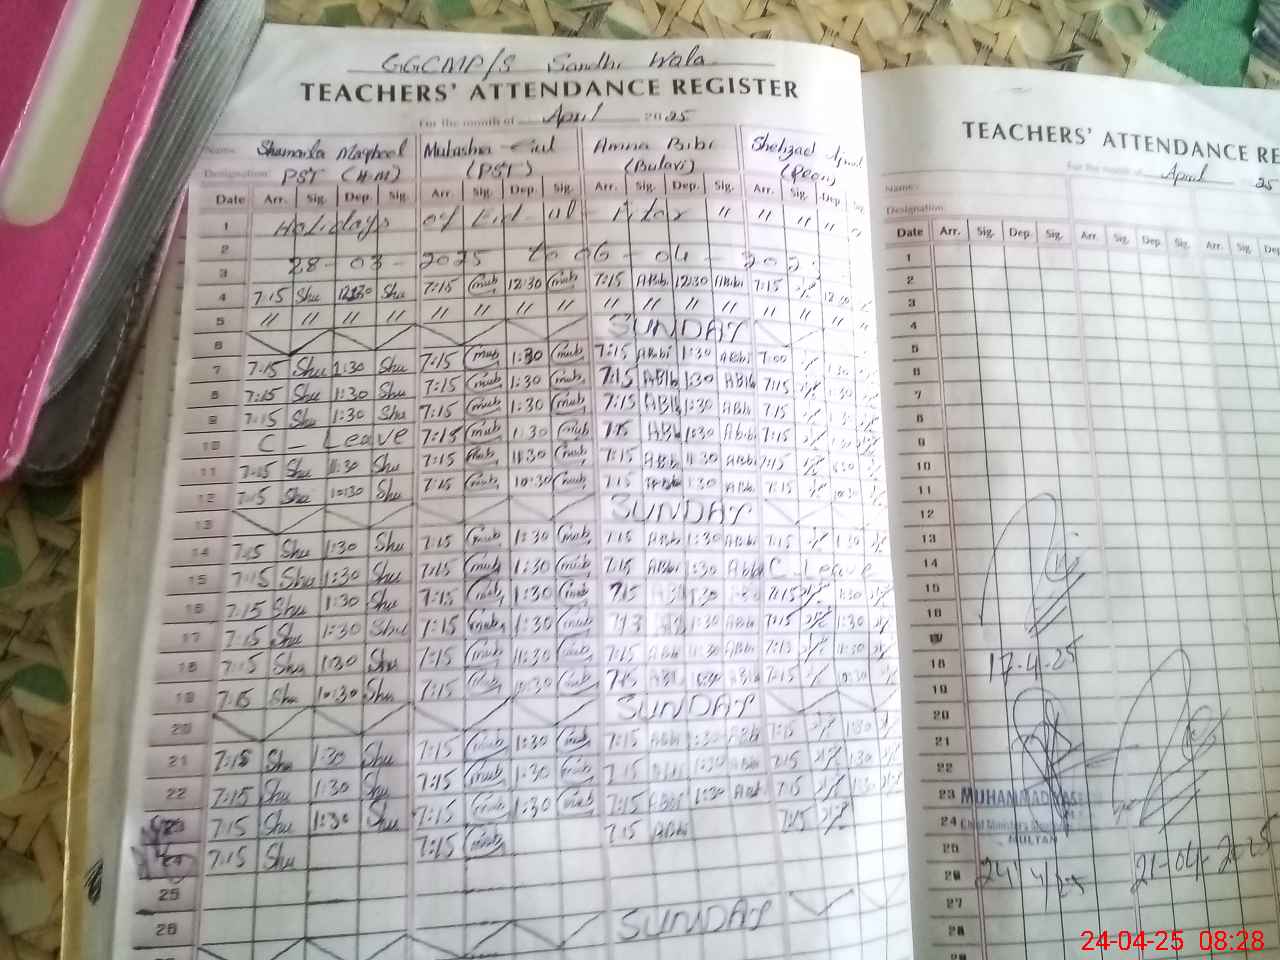 GGCMP/S Sandhi Wala
TEACHERS' ATTENDANCE REGISTER
For the month of April 2025
Name: Shamaila Maqbool Mubashra Gul Amna Bibi Shehzad
Designation: PST (H.M) (PST) (Bulavi) (Peon)
Date Arr. Sig. Dep. Sig. Arr. Sig. Dep. Sig. Arr. Sig. Dep. Sig. Arr. Sig. Dep. Sig.
1 Holidays of Eid ul Fitar " " " " "
2
3 28-03-2025 to 06-04-202
4 7:15 Shu 12:30 Shu 7:15 mub 12:30 mub 7:15 ABibi 12:30 ABibi 7:15 12:30
5 " " " " " " " " " " " " " "
6 SUNDAY
7 7:15 Shu 1:30 Shu 7:15 mub 1:30 mub 7:15 ABibi 1:30 ABibi 7:00 1:30
8 7:15 Shu 1:30 Shu 7:15 mub 1:30 mub 7:15 ABIb 1:30 ABIb 7:15 1:30
9 7:15 Shu 1:30 Shu 7:15 mub 1:30 mub 7:15 ABIb 1:30 ABIb 7:15
10 C - Leave 7:15 mub 1:30 mub 7:15 ABb 1:30 Abibi 7:15
11 7:15 Shu 11:30 Shu 7:15 mub 11:30 mub 7:15 ABib 11:30 ABbi 7:15
12 7:15 Shu 10:30 Shu 7:15 mub 10:30 mub 7:15 10:30 ABbi 7:15 10:30
13 SUNDAY
14 7:15 Shu 1:30 Shu 7:15 mub 1:30 mub 7:15 ABbi 1:30 ABbi 7:15 1:30
15 7:15 Shu 1:30 Shu 7:15 mub 1:30 mub 7:15 ABbi 1:30 Abbi C Leave
16 7:15 Shu 1:30 Shu 7:15 mub 1:30 mub 7:15 1:30 7:15 1:30
17 7:15 Shu 1:30 Shu 7:15 mub 1:30 mub 1:30 ABb 7:15 1:30
18 7:15 Shu 1:30 Shu 7:15 mub 11:30 mub 7:15 ABbi 11:30 ABbi 11:30
19 7:15 Shu 10:30 Shu 7:15 mub 10:30 mub 7:15 ABI 10:30 ABb 7:15 10:30
20 SUNDAY
21 7:15 Shu 1:30 Shu 7:15 mub 1:30 mub 7:15 ABbi 1:30 ABbi 7:15 1:30
22 7:15 Shu 1:30 Shu 7:15 mub 1:30 mub 7:15 1:30 ABbi 7:15 1:30
23 7:15 Shu 1:30 Shu 7:15 mub 1:30 mub 7:15 ABbi 1:30 7:15 1:30
24 7:15 Shu 7:15 mub 7:15 ABbi 7:15
25
26 SUNDAY
TEACHERS' ATTENDANCE RE
For the month of April 25
Name:
Designation:
Date Arr. Sig. Dep. Sig. Arr. Sig. Dep. Sig. Arr. Sig. Dep
1
2
3
4
5
6
7
8
9
10
11
12
13
14
15
16
17
18 17-4-25
19
20
21
22
23 MUHAMMAD
24 Chief Minister's
25 MULTAN
26 24 4/25 21-04-2025
27
28
24-04-25 08:28